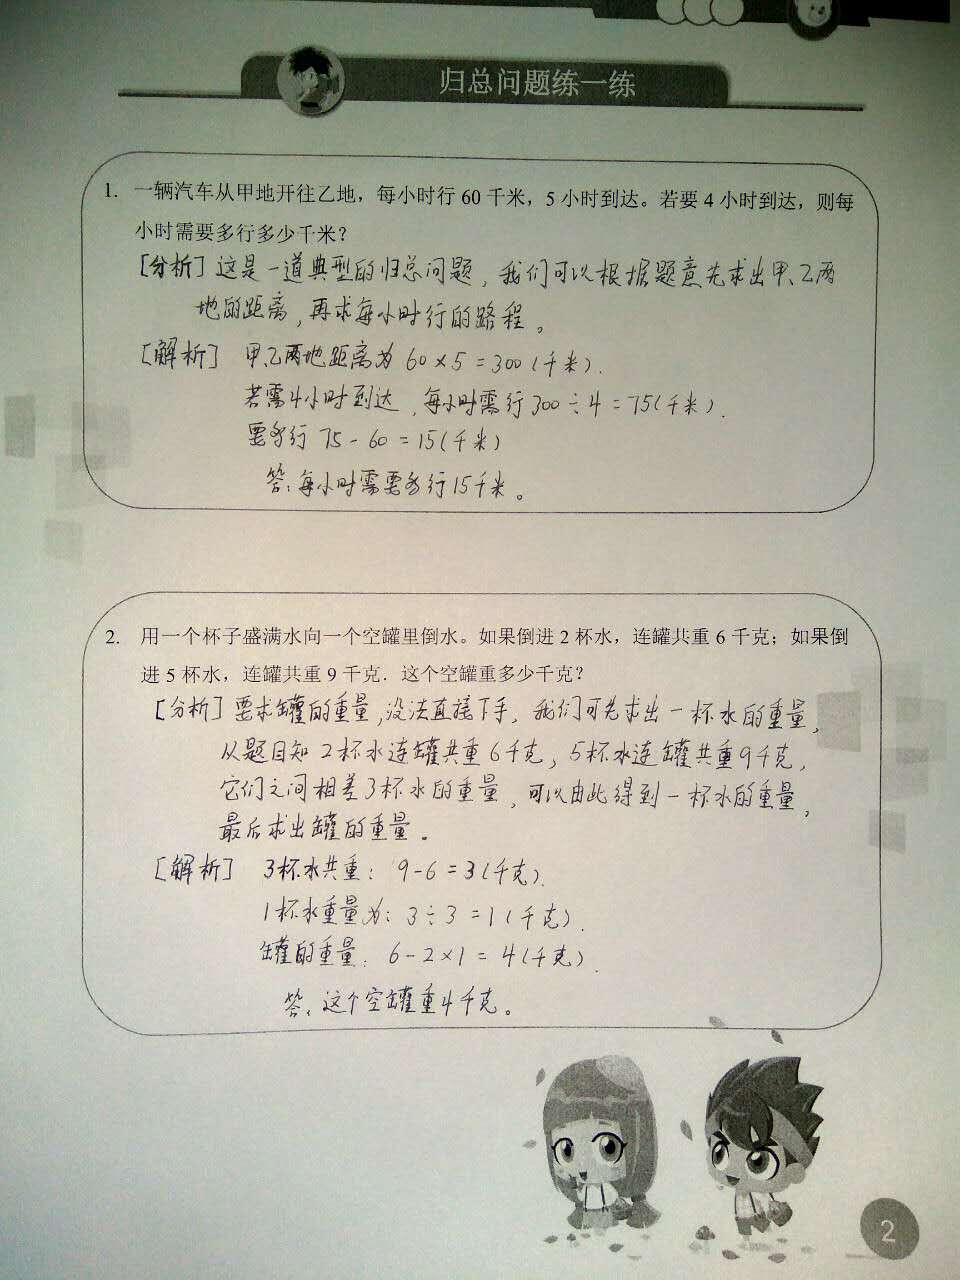 归总问题练一练
1. 一辆汽车从甲地开往乙地，每小时行 60 千米，5 小时到达。若要 4 小时到达，则每
小时需要多行多少千米？
[分析] 这是一道典型的归总问题，我们可以根据题意先求出甲、乙两
地的距离，再求每小时行的路程。
[解析] 甲、乙两地距离为 60×5=300(千米).
若需4小时到达，每小时需行 300÷4=75(千米).
要多行 75-60=15(千米)
答：每小时需要多行15千米。
2. 用一个杯子盛满水向一个空罐里倒水。如果倒进 2 杯水，连罐共重 6 千克；如果倒
进 5 杯水，连罐共重 9 千克．这个空罐重多少千克？
[分析] 要求罐的重量，没法直接下手，我们可先求出一杯水的重量，
从题目知 2杯水连罐共重6千克，5杯水连罐共重9千克，
它们之间相差3杯水的重量，可以由此得到一杯水的重量，
最后求出罐的重量。
[解析] 3杯水共重：9-6=3(千克).
1杯水重量为：3÷3=1(千克).
罐的重量：6-2×1=4(千克).
答：这个空罐重4千克。
2